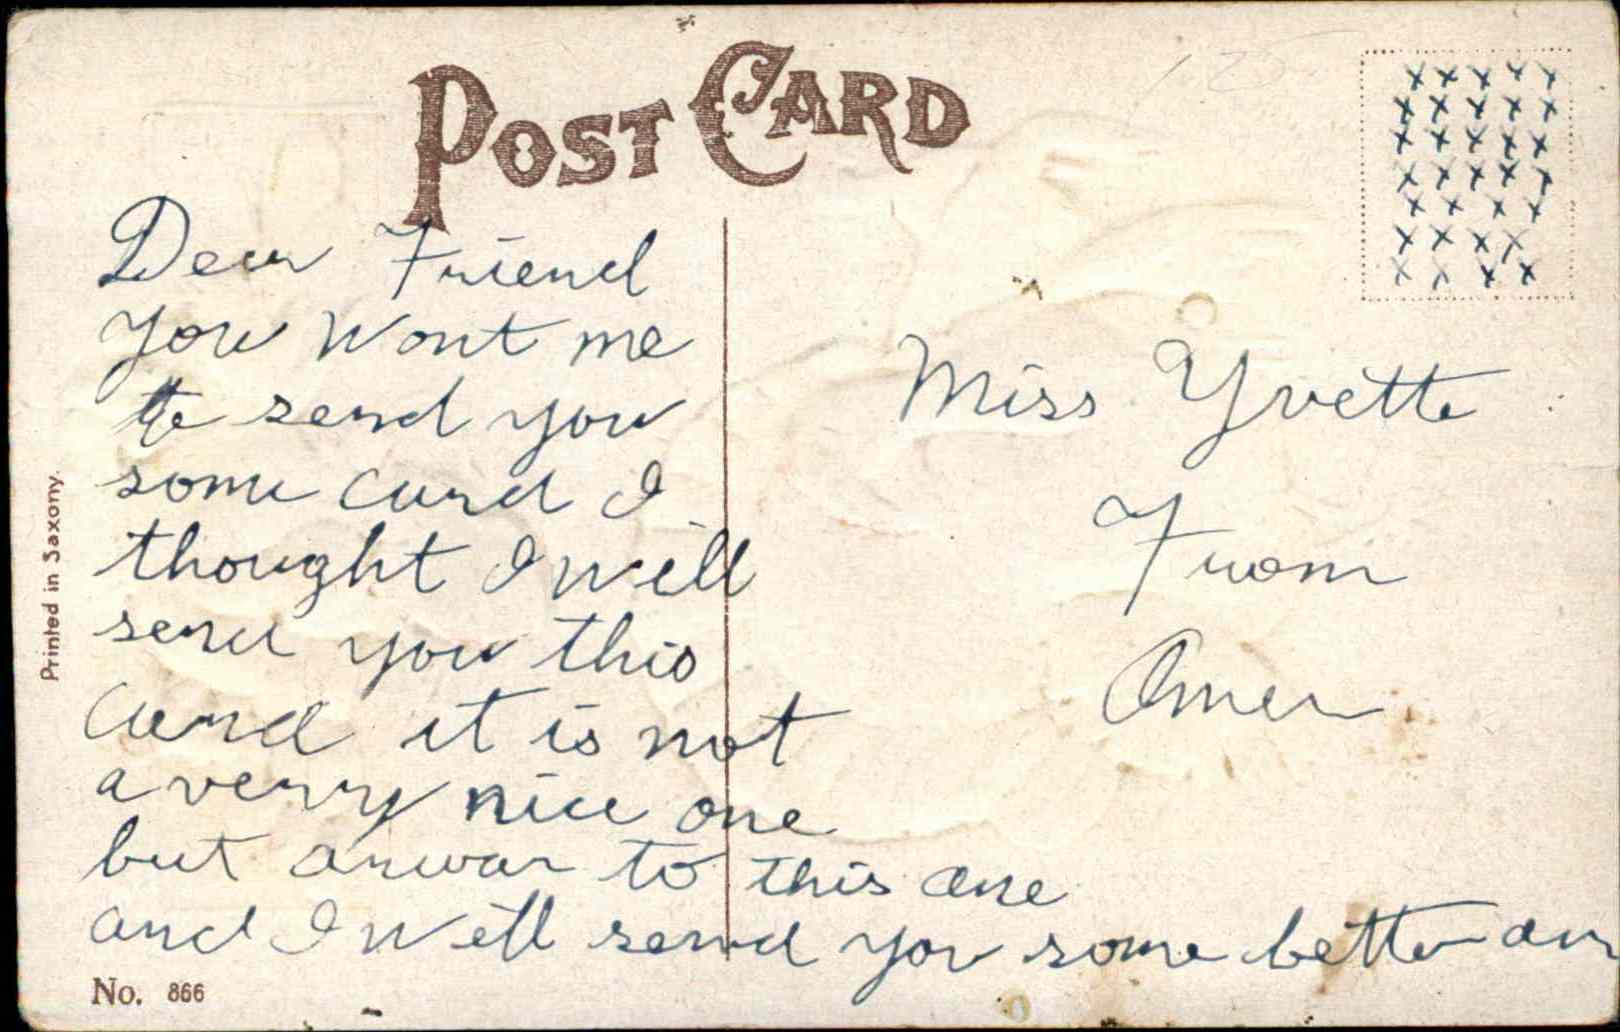 POST CARD
Dear Friend
You Wont me
to send you
some card I
thought I will
send you this
card it is not
a verry nice one
but anwar to this one
and I will send you some better
Miss Yvette
From
Omer
Printed in Saxony.
No. 866